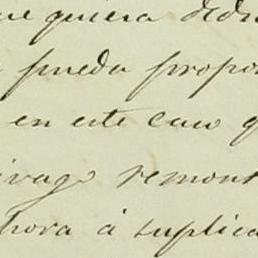 ue quiera dedu
pueda propo
en este caso q
ivago remont
hora á suplica